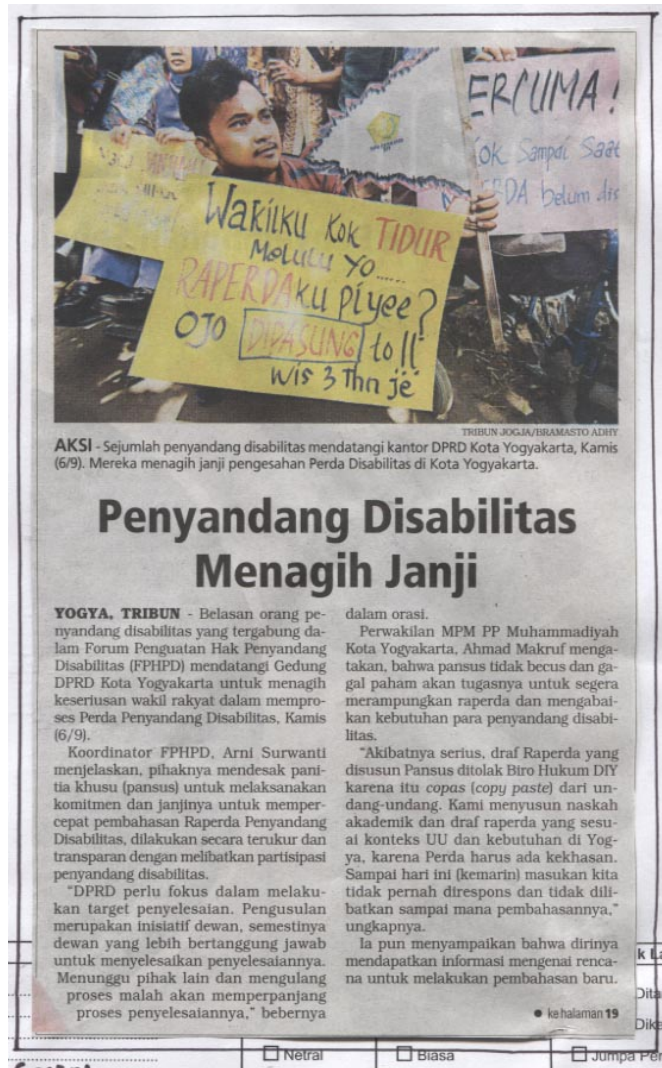 ERCUMA!
Kok Sampai Saat
PERDA belum dis
WAKILKU KOK TIDUR
MOLULU YO......
RAPERDAKU PIYee?
OJO DIPASUNG to ll
wis 3 Thn je
TRIBUN JOGJA/BRAMASTO ADHY
AKSI - Sejumlah penyandang disabilitas mendatangi kantor DPRD Kota Yogyakarta, Kamis
(6/9). Mereka menagih janji pengesahan Perda Disabilitas di Kota Yogyakarta.
Penyandang Disabilitas
Menagih Janji
YOGYA, TRIBUN - Belasan orang pe-
nyandang disabilitas yang tergabung da-
lam Forum Penguatan Hak Penyandang
Disabilitas (FPHPD) mendatangi Gedung
DPRD Kota Yogyakarta untuk menagih
keseriusan wakil rakyat dalam mempro-
ses Perda Penyandang Disabilitas, Kamis
(6/9).
Koordinator FPHPD, Arni Surwanti
menjelaskan, pihaknya mendesak pani-
tia khusu (pansus) untuk melaksanakan
komitmen dan janjinya untuk memper-
cepat pembahasan Raperda Penyandang
Disabilitas, dilakukan secara terukur dan
transparan dengan melibatkan partisipasi
penyandang disabilitas.
"DPRD perlu fokus dalam melaku-
kan target penyelesaian. Pengusulan
merupakan inisiatif dewan, semestinya
dewan yang lebih bertanggung jawab
untuk menyelesaikan penyelesaiannya.
Menunggu pihak lain dan mengulang
proses malah akan memperpanjang
proses penyelesaiannya," bebernya
dalam orasi.
Perwakilan MPM PP Muhammadiyah
Kota Yogyakarta, Ahmad Makruf menga-
takan, bahwa pansus tidak becus dan ga-
gal paham akan tugasnya untuk segera
merampungkan raperda dan mengabai-
kan kebutuhan para penyandang disabi-
litas.
"Akibatnya serius, draf Raperda yang
disusun Pansus ditolak Biro Hukum DIY
karena itu copas (copy paste) dari un-
dang-undang. Kami menyusun naskah
akademik dan draf raperda yang sesu-
ai konteks UU dan kebutuhan di Yog-
ya, karena Perda harus ada kekhasan.
Sampai hari ini (kemarin) masukan kita
tidak pernah direspons dan tidak dili-
batkan sampai mana pembahasannya,"
ungkapnya.
Ia pun menyampaikan bahwa dirinya
mendapatkan informasi mengenai renca-
na untuk melakukan pembahasan baru.
● ke halaman 19
k La
Dita
Dika
Netral
Biasa
Jumpa Per